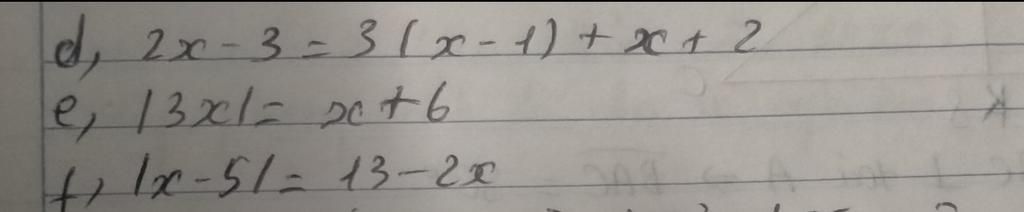 d, 2x - 3 = 3(x - 1) + x + 2
e, |3x| = x + 6
f, |x - 5| = 13 - 2x